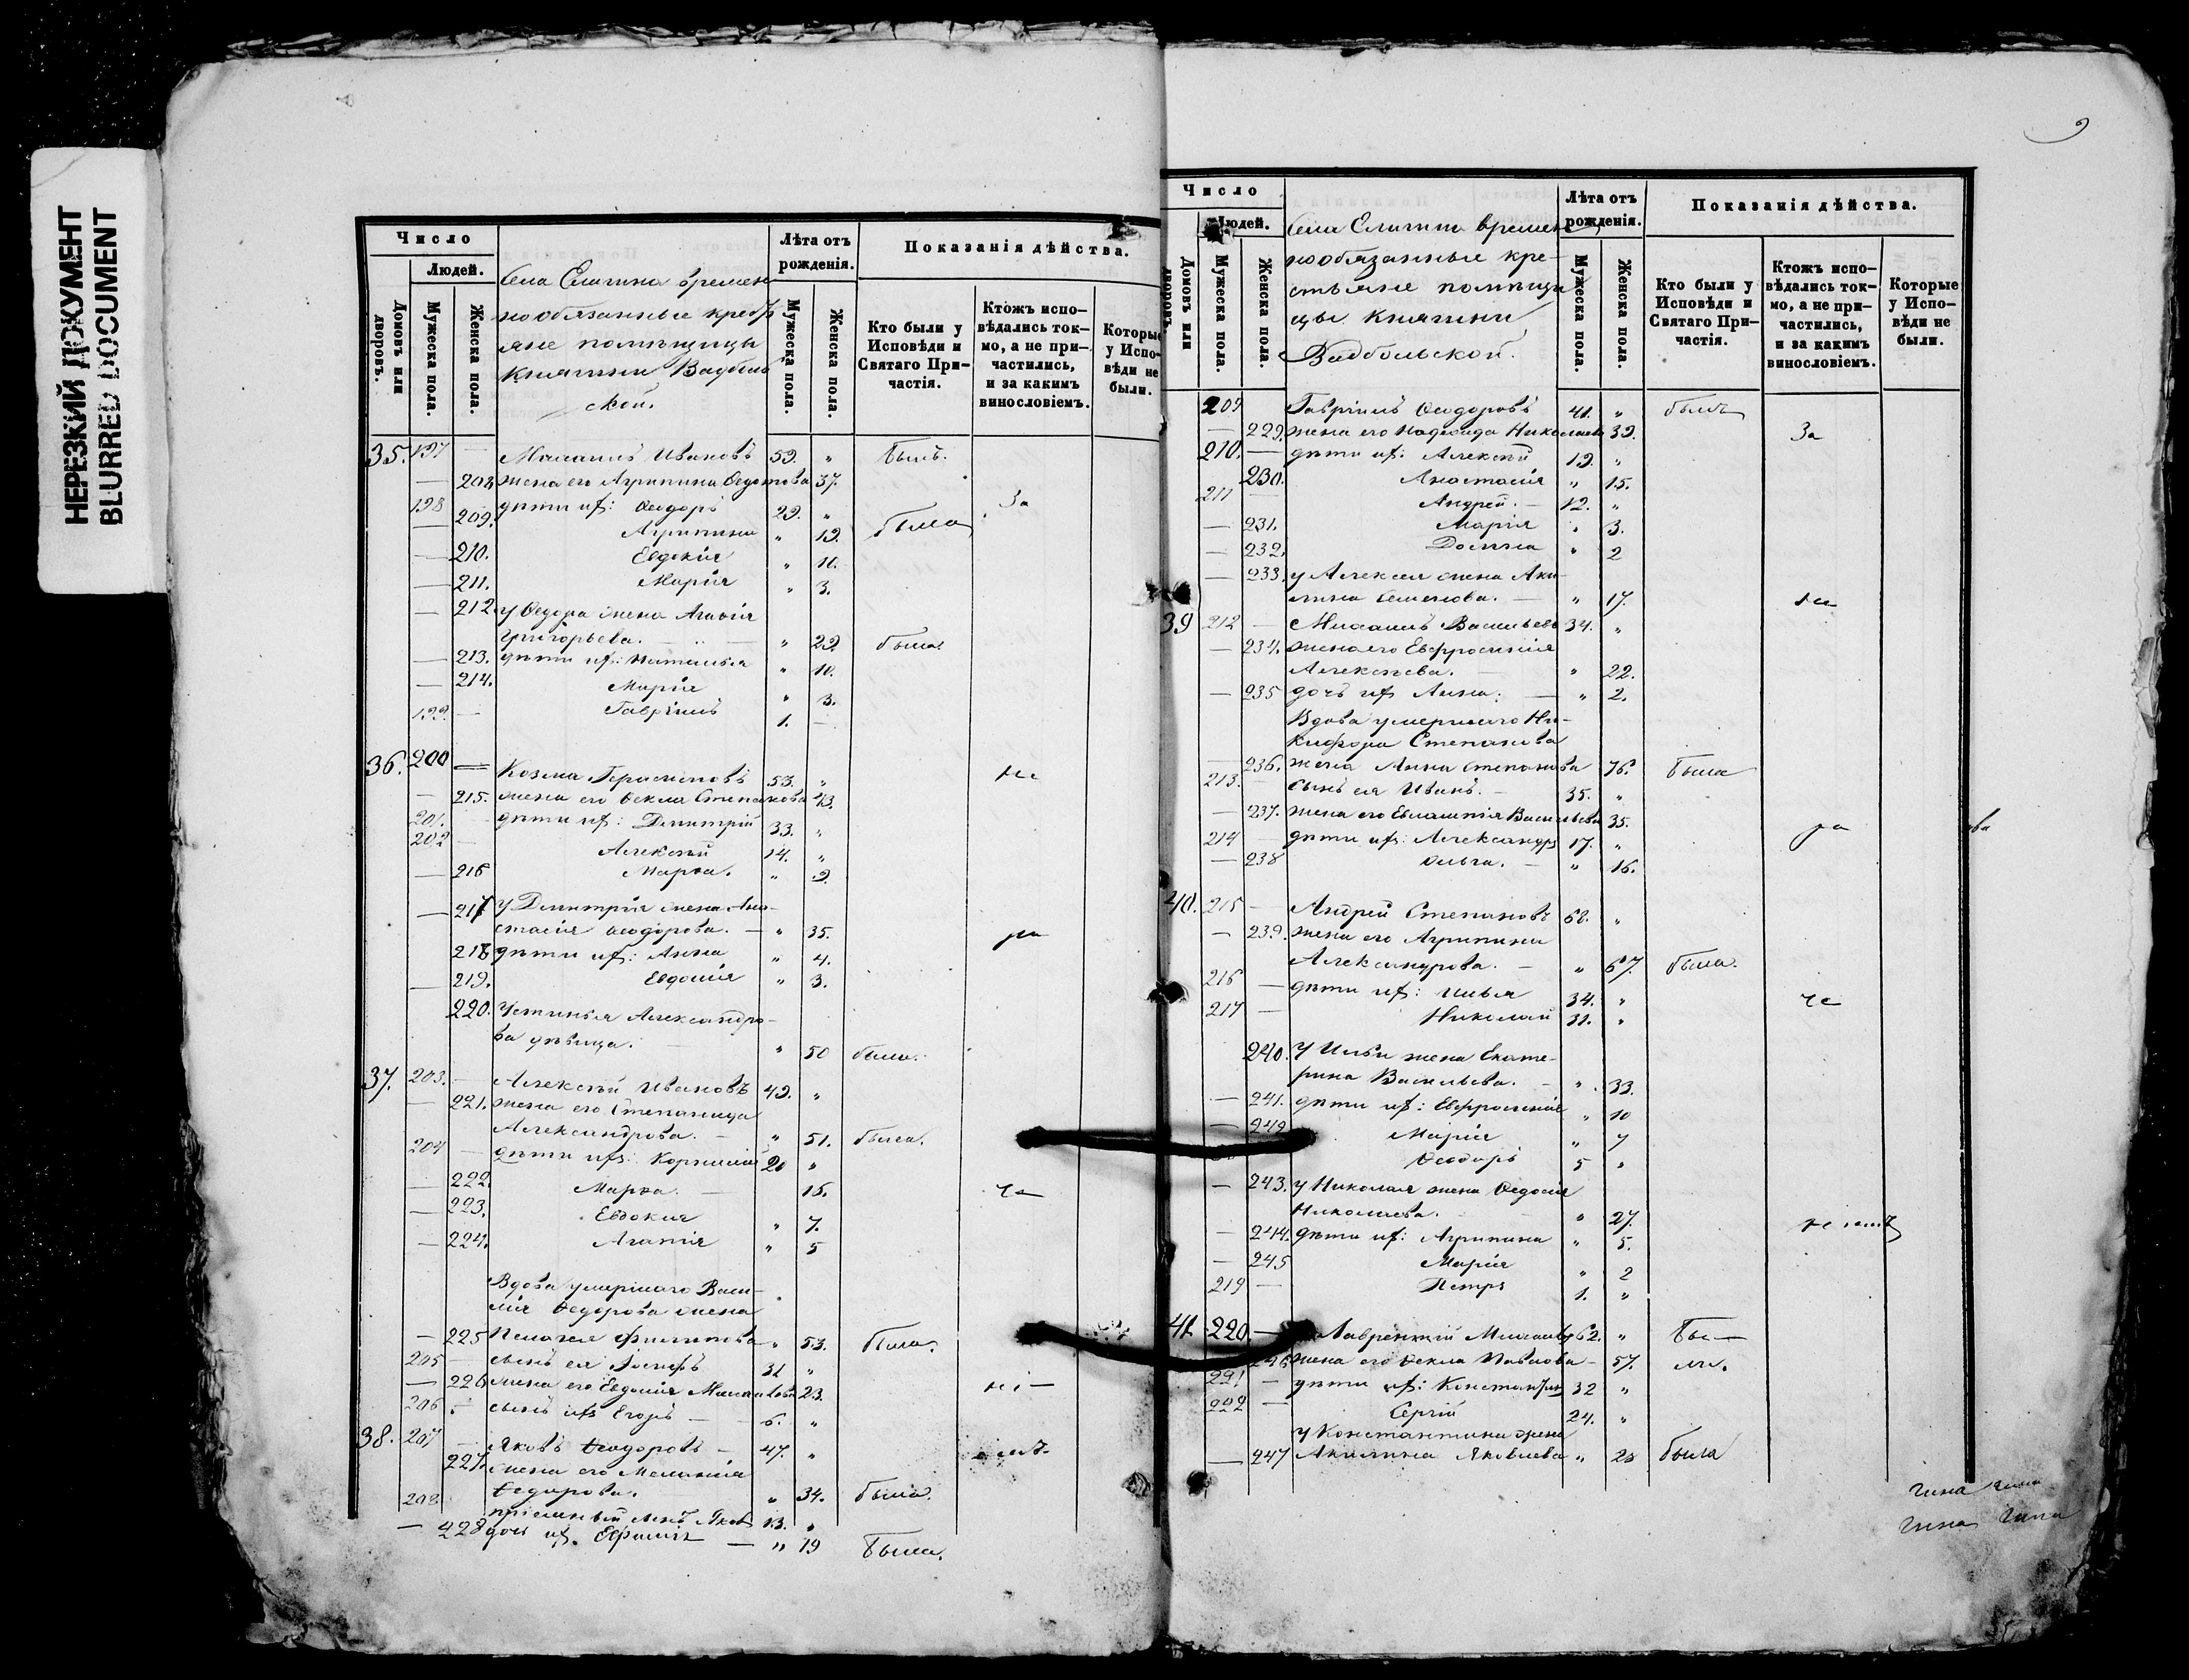 НЕРЕЗКИЙ ДОКУМЕНТ
BLURRED DOCUMENT
Число
Людей.
Домовъ или дворовъ.
Мужеска пола.
Женска пола.
Села Елагина времен
нообязанные крестъ
яне помѣщицы
Княгини Вадболь
ской.
Лѣта отъ рожденія.
Мужеска пола.
Женска пола.
Показанія дѣйства.
Кто были у Исповѣди и Святаго Причастія.
Ктожъ исповѣдались токмо, а не причастились, и за какимъ винословіемъ.
Которые у Исповѣди не были.
35. 197 — Михаилъ Ивановъ 59. " Былъ.
— 208. жена его Агрипина Ѳедотова 37.
198 дѣти ихъ: Ѳеодоръ 29. " За
— 209. Агрипина " 19. была
— 210. Евдокія " 11.
— 211. Марія " 3.
— 212. у Ѳедора жена Агафія
Григорьева. — " 29. была
— 213. дѣти ихъ: Наталья " 10.
— 214. Марія " 3.
199. — Гавріилъ 1. —
36. 200 — Козма Герасимовъ 53. " не
— 215. жена его Ѳекла Степанова 43.
201. дѣти ихъ: Димитрій 33. "
202 — Алексѣй 14. "
— 216 Марѳа. " 9.
— 217 у Димитрія жена Ана-
стасія Ѳеодорова. — " 35. ра
218 дѣти ихъ: Анна " 4.
— 219. Евдокія " 3.
220. Устинья Александро-
ва дѣвица. " 50 была.
37. 203. — Алексѣй Ивановъ 49. "
— 221. жена его Степанида
Александрова. — " 51. была.
204 — дѣти ихъ: Корнилій 20 "
— 222. Марѳа. — 16. че
— 223. Евдокия " 7.
— 224. Агафія " 5
Вдова умершаго Васи-
лія Ѳедорова жена
— 225 Пелагея Филипова " 53. Была.
205 — сынъ ея Іосифъ 31 "
— 226 жена его Евдокія Михайлова 23. ні—
206 сынъ ихъ Егоръ — 6. "
38. 207 — Яковъ Ѳеодоровъ — 47. "
227. жена его Меланія
Ѳедорова. " 34. была.
208 пріемный сынъ Яковъ 13. "
— 228 дочь ихъ Ефимія — " 19 Была.
9
Число
Людей.
Домовъ или дворовъ.
Мужеска пола.
Женска пола.
Села Елагина времен
нообязанные кре-
стьяне помѣщи
цы Княгини
Вадбольской.
Лѣта отъ рожденія.
Мужеска пола.
Женска пола.
Показанія дѣйства.
Кто были у Исповѣди и Святаго Причастія.
Ктожъ исповѣдались токмо, а не причастились, и за какимъ винословіемъ.
Которые у Исповѣди не были.
209 Гавріилъ Ѳеодоровъ 41. " былъ
— 229. жена его Надежда Николаева 39. За
210. — дѣти ихъ: Алексѣй 19. "
230. Анастасія " 15.
211 — Андрей. — 12. "
— 231. Марія " 3.
— 232. Домна " 2
— 233. у Алексея жена Аки-
лина Семенова. — " 17. не
39 212 — Михаилъ Васильевъ 34. "
— 234. жена его Евфросинія
Алексѣева. — " 22.
— 235 дочь ихъ Анна. — " 2.
Вдова умершаго Ни-
кифора Степанова
— 236. жена Анна Степанова 76. Была
213. — сынъ ея Иванъ. — 35. "
— 237. жена его Евлампія Васильева 35. ра
214 — дѣти ихъ: Александръ 17. "
— 238 Ольга. — " 16.
40. 215 — Андрей Степановъ 68. "
— 239. жена его Агрипина
Александрова. — " 67. была.
216 — дѣти ихъ: Илья 34. " че
217 — Николай 31. "
240. У Ильи жена Екате-
рина Васильева. — " 33.
— 241. дѣти ихъ: Евфросинія " 10
— 242 Марія " 7
Ѳеодоръ 5 "
— 243. у Николая жена Ѳедосія
Николаева. — " 27.
— 244. дѣти ихъ: Агрипина " 5.
— 245 Марія " 2
219 — Петръ 1. "
41 220. — Лаврентій Михайловъ 62. " Бы—
246 жена его Ѳекла Павлова — 57. ли.
221 — дѣти ихъ: Константинъ 32 "
222 — Сергій 24. "
у Константина жена
— 247 Акилина Яковлева " 25 была